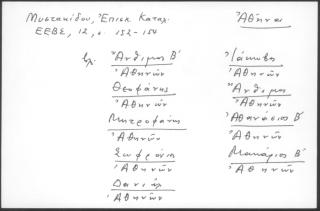 Μυστακίδου, Ἐπισκ. Καταλ.
ΕΕΒΣ, 12, σ. 152-154
Ἀθῆναι
βλ. Ἄνθιμος Β´
Ἀθηνῶν
Θεοφάνης
Ἀθηνῶν
Μητροφάνης
Ἀθηνῶν
Σωφρόνιος
Ἀθηνῶν
Δανιήλ
Ἀθηνῶν
Ἰάκωβος
Ἀθηνῶν
Ἄνθιμος
Ἀθηνῶν
Ἀθανάσιος Β´
Ἀθηνῶν
Μακάριος Β´
Ἀθηνῶν